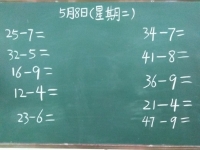 5月8日(星期二)
25-7=
32-5=
16-9=
12-4=
23-6=
34-7=
41-8=
36-9=
21-4=
47-9=